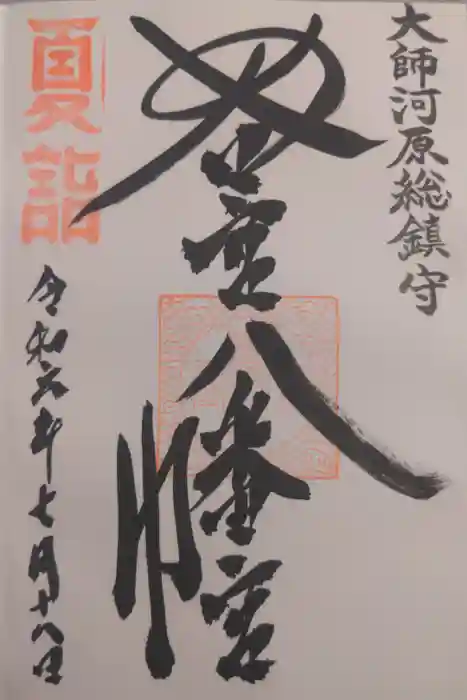 大師河原総鎮守
若宮八幡宮
夏詣
令和六年七月十八日